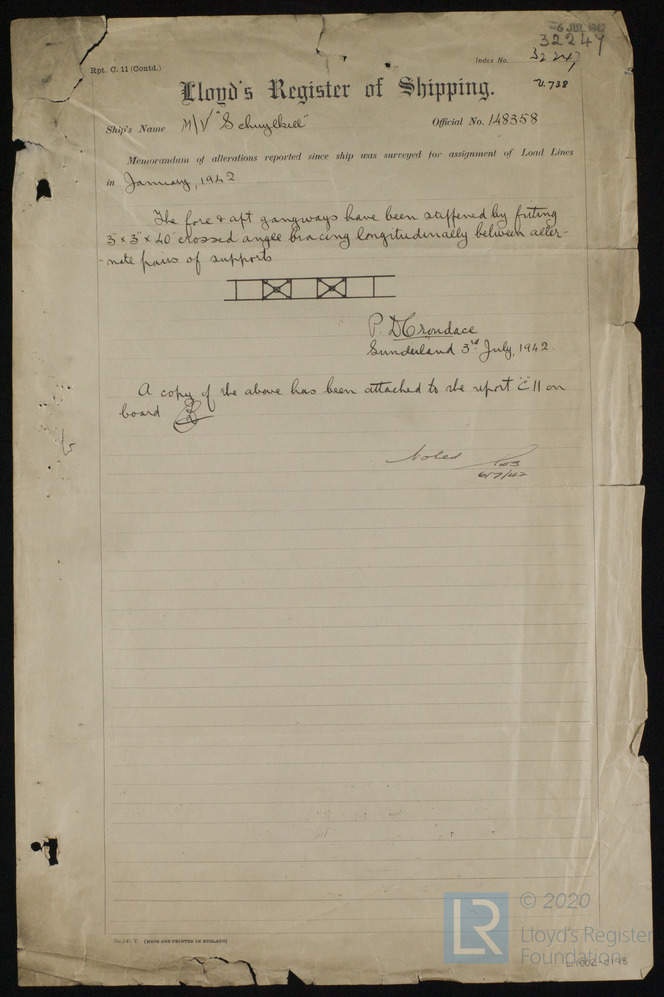 -6 JUL 1942
32247
Rpt. C. 11 (Contd.)
Index No. 32247
Lloyd's Register of Shipping.
V. 738
Ship's Name M/V "Schuylkill" Official No. 148358
Memorandum of alterations reported since ship was surveyed for assignment of Load Lines
in January, 1942
The fore & aft gangways have been stiffened by fitting
3" x 3" x .40" crossed angle bracing longitudinally between alter-
-nate pairs of supports
P. D Crondace
Sunderland 3rd July, 1942.
A copy of the above has been attached to the report "C" 11 on
board
Noted
6/7/42
(MADE AND PRINTED IN ENGLAND)
LR
© 2020
Lloyd's Register
Foundation